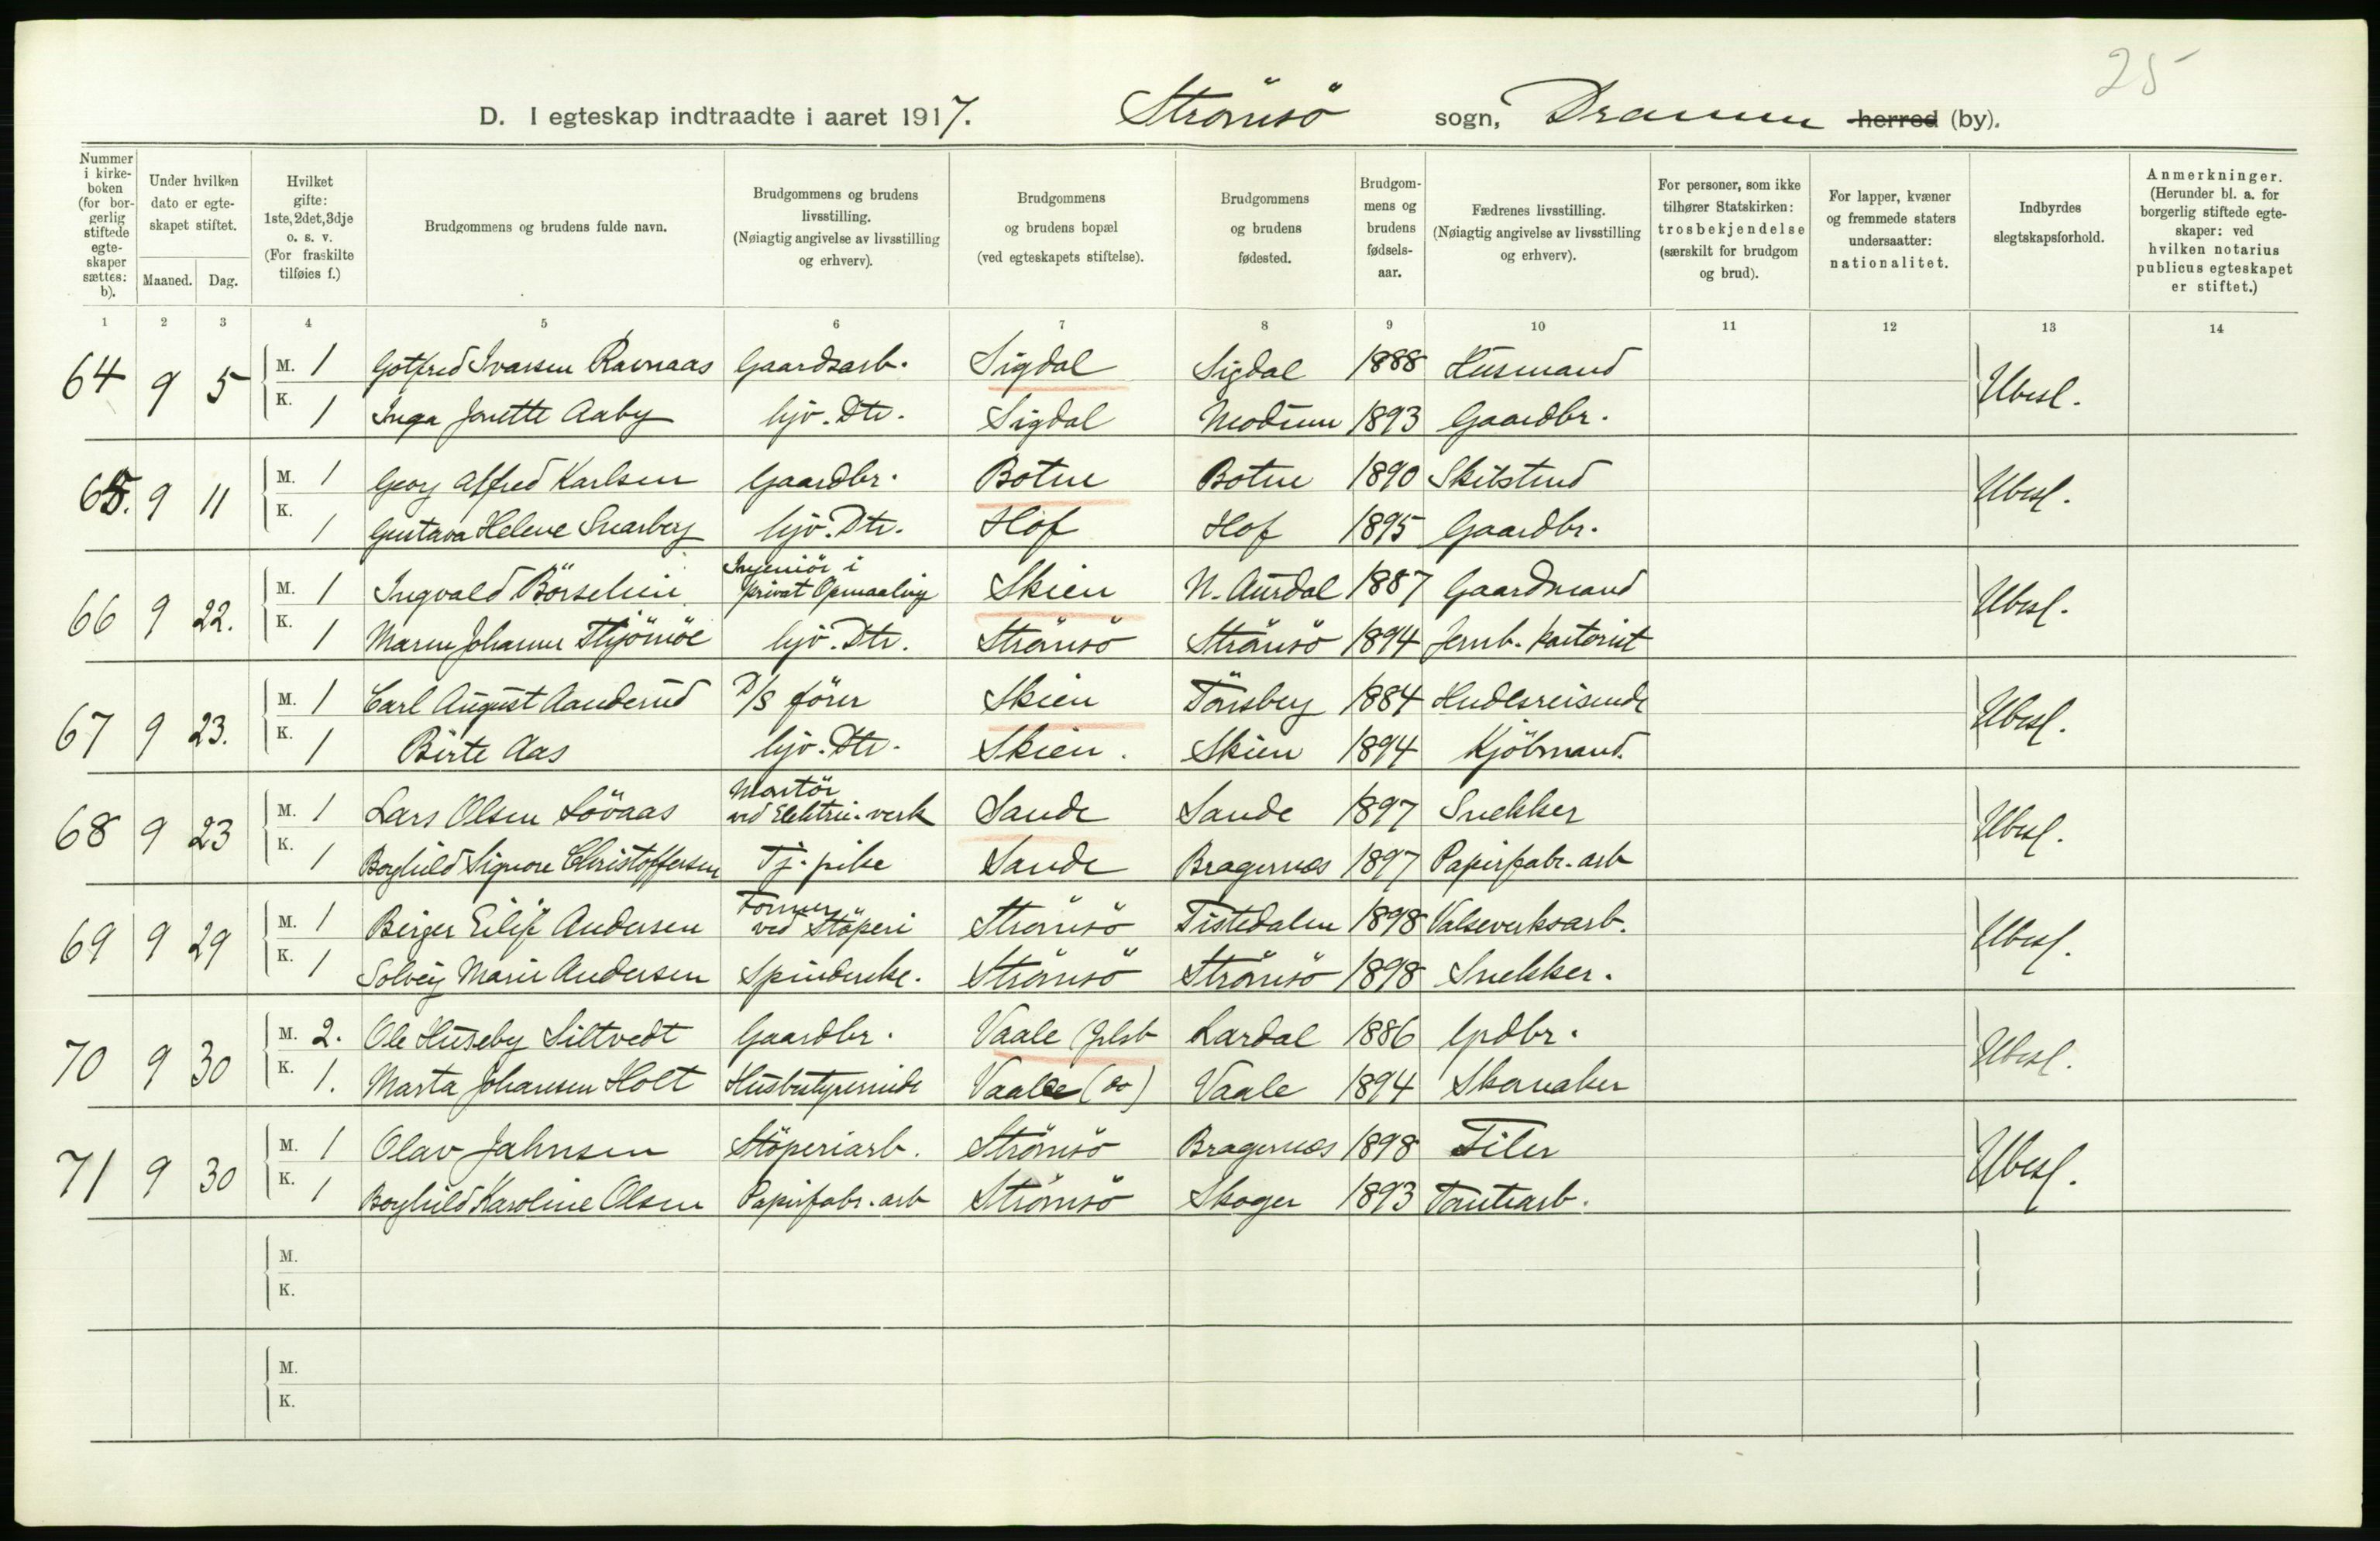 25
D. I egteskap indtraadte i aaret 1917. Strömsö sogn, Drammen herred (by).
Nummer i kirkeboken (for borgerlig stiftede egteskaper sættes: b).
Under hvilken dato er egteskapet stiftet.
Maaned. Dag.
Hvilket gifte: 1ste, 2det, 3dje o. s. v. (For fraskilte tilføies f.)
Brudgommens og brudens fulde navn.
Brudgommens og brudens livsstilling. (Nøiagtig angivelse av livsstilling og erhverv).
Brudgommens og brudens bopæl (ved egteskapets stiftelse).
Brudgommens og brudens fødested.
Brudgommens og brudens fødselsaar.
Fædrenes livsstilling. (Nøiagtig angivelse av livsstilling og erhverv).
For personer, som ikke tilhører Statskirken: trosbekjendelse (særskilt for brudgom og brud).
For lapper, kvæner og fremmede staters undersaatter: nationalitet.
Indbyrdes slegtskapsforhold.
Anmerkninger. (Herunder bl. a. for borgerlig stiftede egteskaper: ved hvilken notarius publicus egteskapet er stiftet.)
1 2 3 4 5 6 7 8 9 10 11 12 13 14
64 9 5 M. 1 Gotfred Ivarsen Ravnaas Gaardsarb. Sigdal Sigdal 1888 Husmand Ubesl.
K. 1 Inga Jonette Aaby hjv. Dtr. Sigdal Modum 1893 Gaardbr.
65. 9 11 M. 1 Georg Alfred Karlsen Gaardbr. Botne Botne 1890 Skibstmd Ubesl.
K. 1 Gustava Helene Snarberg hjv. Dtr. Hof Hof 1895 Gaardbr.
66 9 22. M. 1 Ingvald Börselien Ingeniör i privat Opmaaling Skien N. Aurdal 1887 Gaardmand Ubesl.
K. 1 Maren Johanne Thjömöe hjv. Dtr. Strömsö Strömsö 1894 Jernb. kontorist
67 9 23. M. 1 Carl August Aanderud D/S förer Skien Tönsberg 1884 Hndlsreisende Ubesl.
K. 1 Birte Aas hjv. Dtr. Skien. Skien 1894 Kjöbmand.
68 9 23 M. 1 Lars Olsen Lövaas Montör ved Elektri. verk Sande Sande 1897 Snekker Ubesl.
K. 1 Borghild Signore Christoffersen Tj. pike Sande Bragernæs 1897 Papirfabr. arb
69 9 29 M. 1 Birger Eilif Andersen Former ved Stöperi Strömsö Tistedalen 1898 Valseverksarb. Ubesl.
K. 1 Solveig Marie Andersen Spinderske. Strömsö Strömsö 1898 Snekker.
70 9 30 M. 2. Ole Huseby Siltvedt Gaardbr. Vaale (Jrlsb Lardal 1886 Gpdbr. Ubesl.
K. 1. Marta Johansen Holt Husbestyrerinde Vaale (do) Vaale 1894 Skomaker
71 9 30 M. 1 Olav Jahnsen Stöperiarb. Strömsö Bragernæs 1898 Filer Ubesl.
K. 1 Borghild Karoline Olsen Papirfabr. arb Strömsö Skoger 1893 Tomtearb.
M.
K.
M.
K.